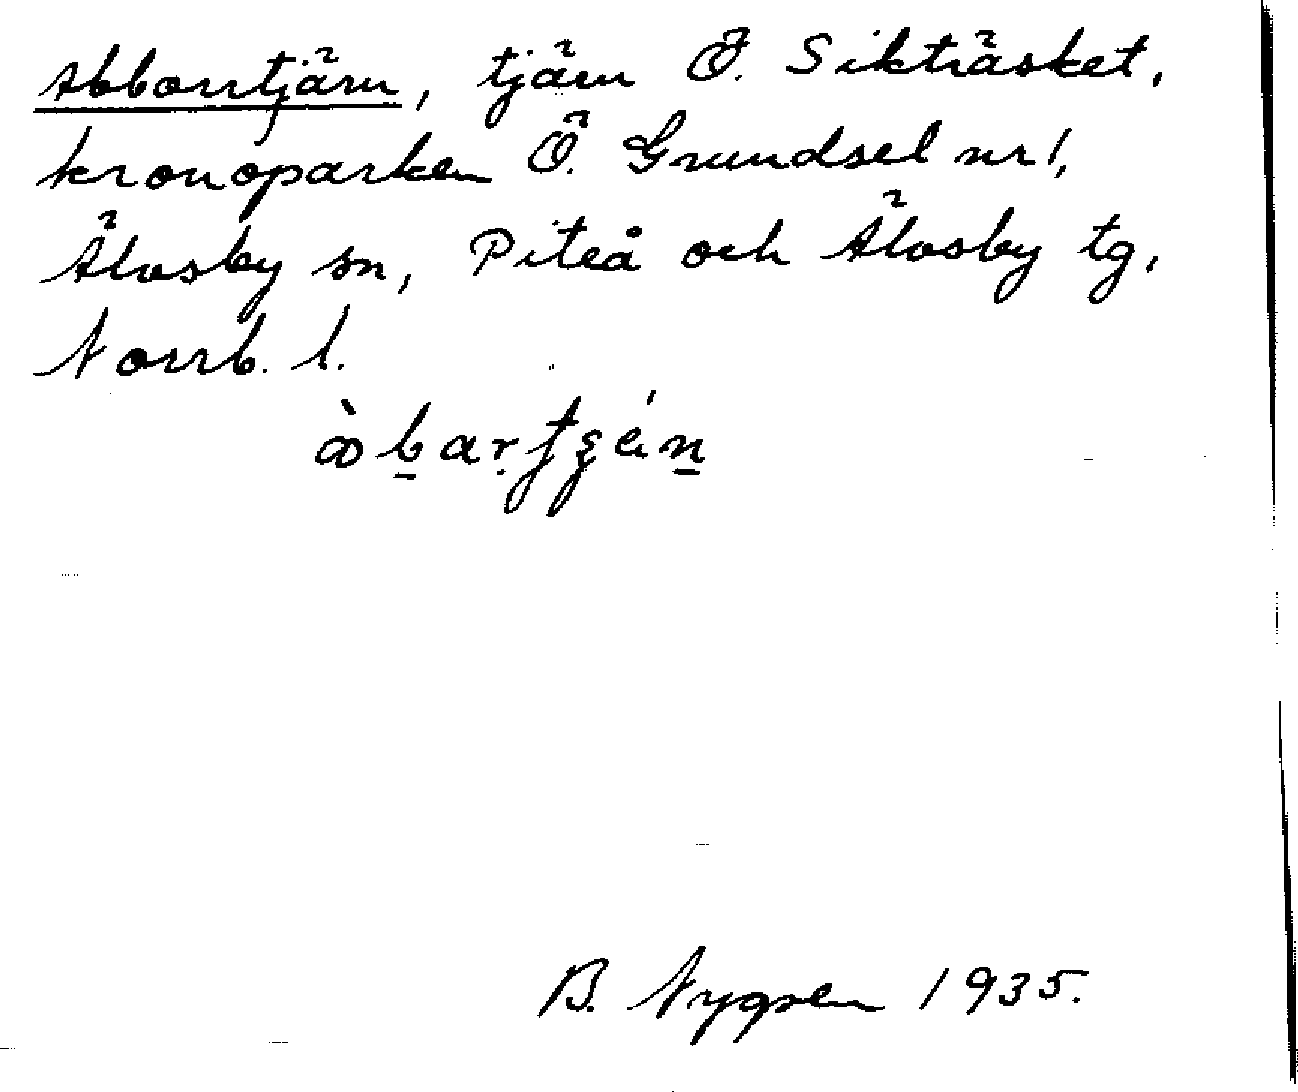 Abborrtjärn, tjärn Ö. Sikträsket,
kronoparken Ö. Grundsel nr 1,
Älvsby sn, Piteå och Älvsby tg,
Norrb. l.
B. Nygren 1935.